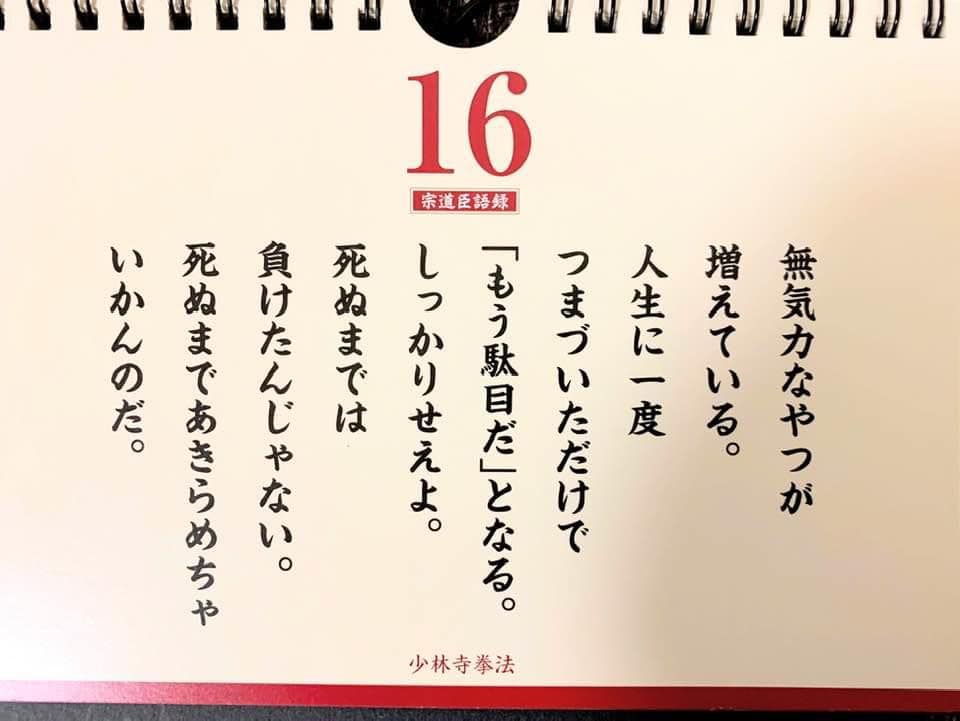 16
宗道臣語録
無気力なやつが
増えている。
人生に一度
つまづいただけで
「もう駄目だ」となる。
しっかりせえよ。
死ぬまでは
負けたんじゃない。
死ぬまであきらめちゃ
いかんのだ。
少林寺拳法